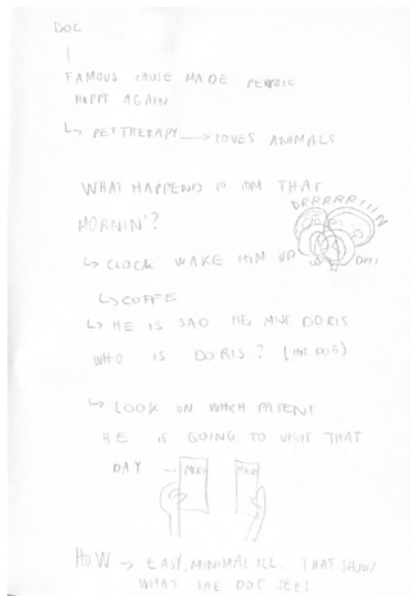 DOC
FAMOUS CAUSE MADE PEOPLE
HAPPY AGAIN
↳ PET THERAPY → LOVES ANIMALS
WHAT HAPPEND IM THAT
MORNIN'?
DRRRRRIIIN
↳ CLOCK WAKE HIM UP
↳ COFFE
↳ HE IS SAD HE MISS DORIS
WHO IS DORIS? (HIS DOG)
↳ LOOK ON WHICH PATIENT
HE IS GOING TO VISIT THAT
DAY →
HOW → EASY, MINIMAL ILL. THAT SHOW
WHAT THE DOC SEES